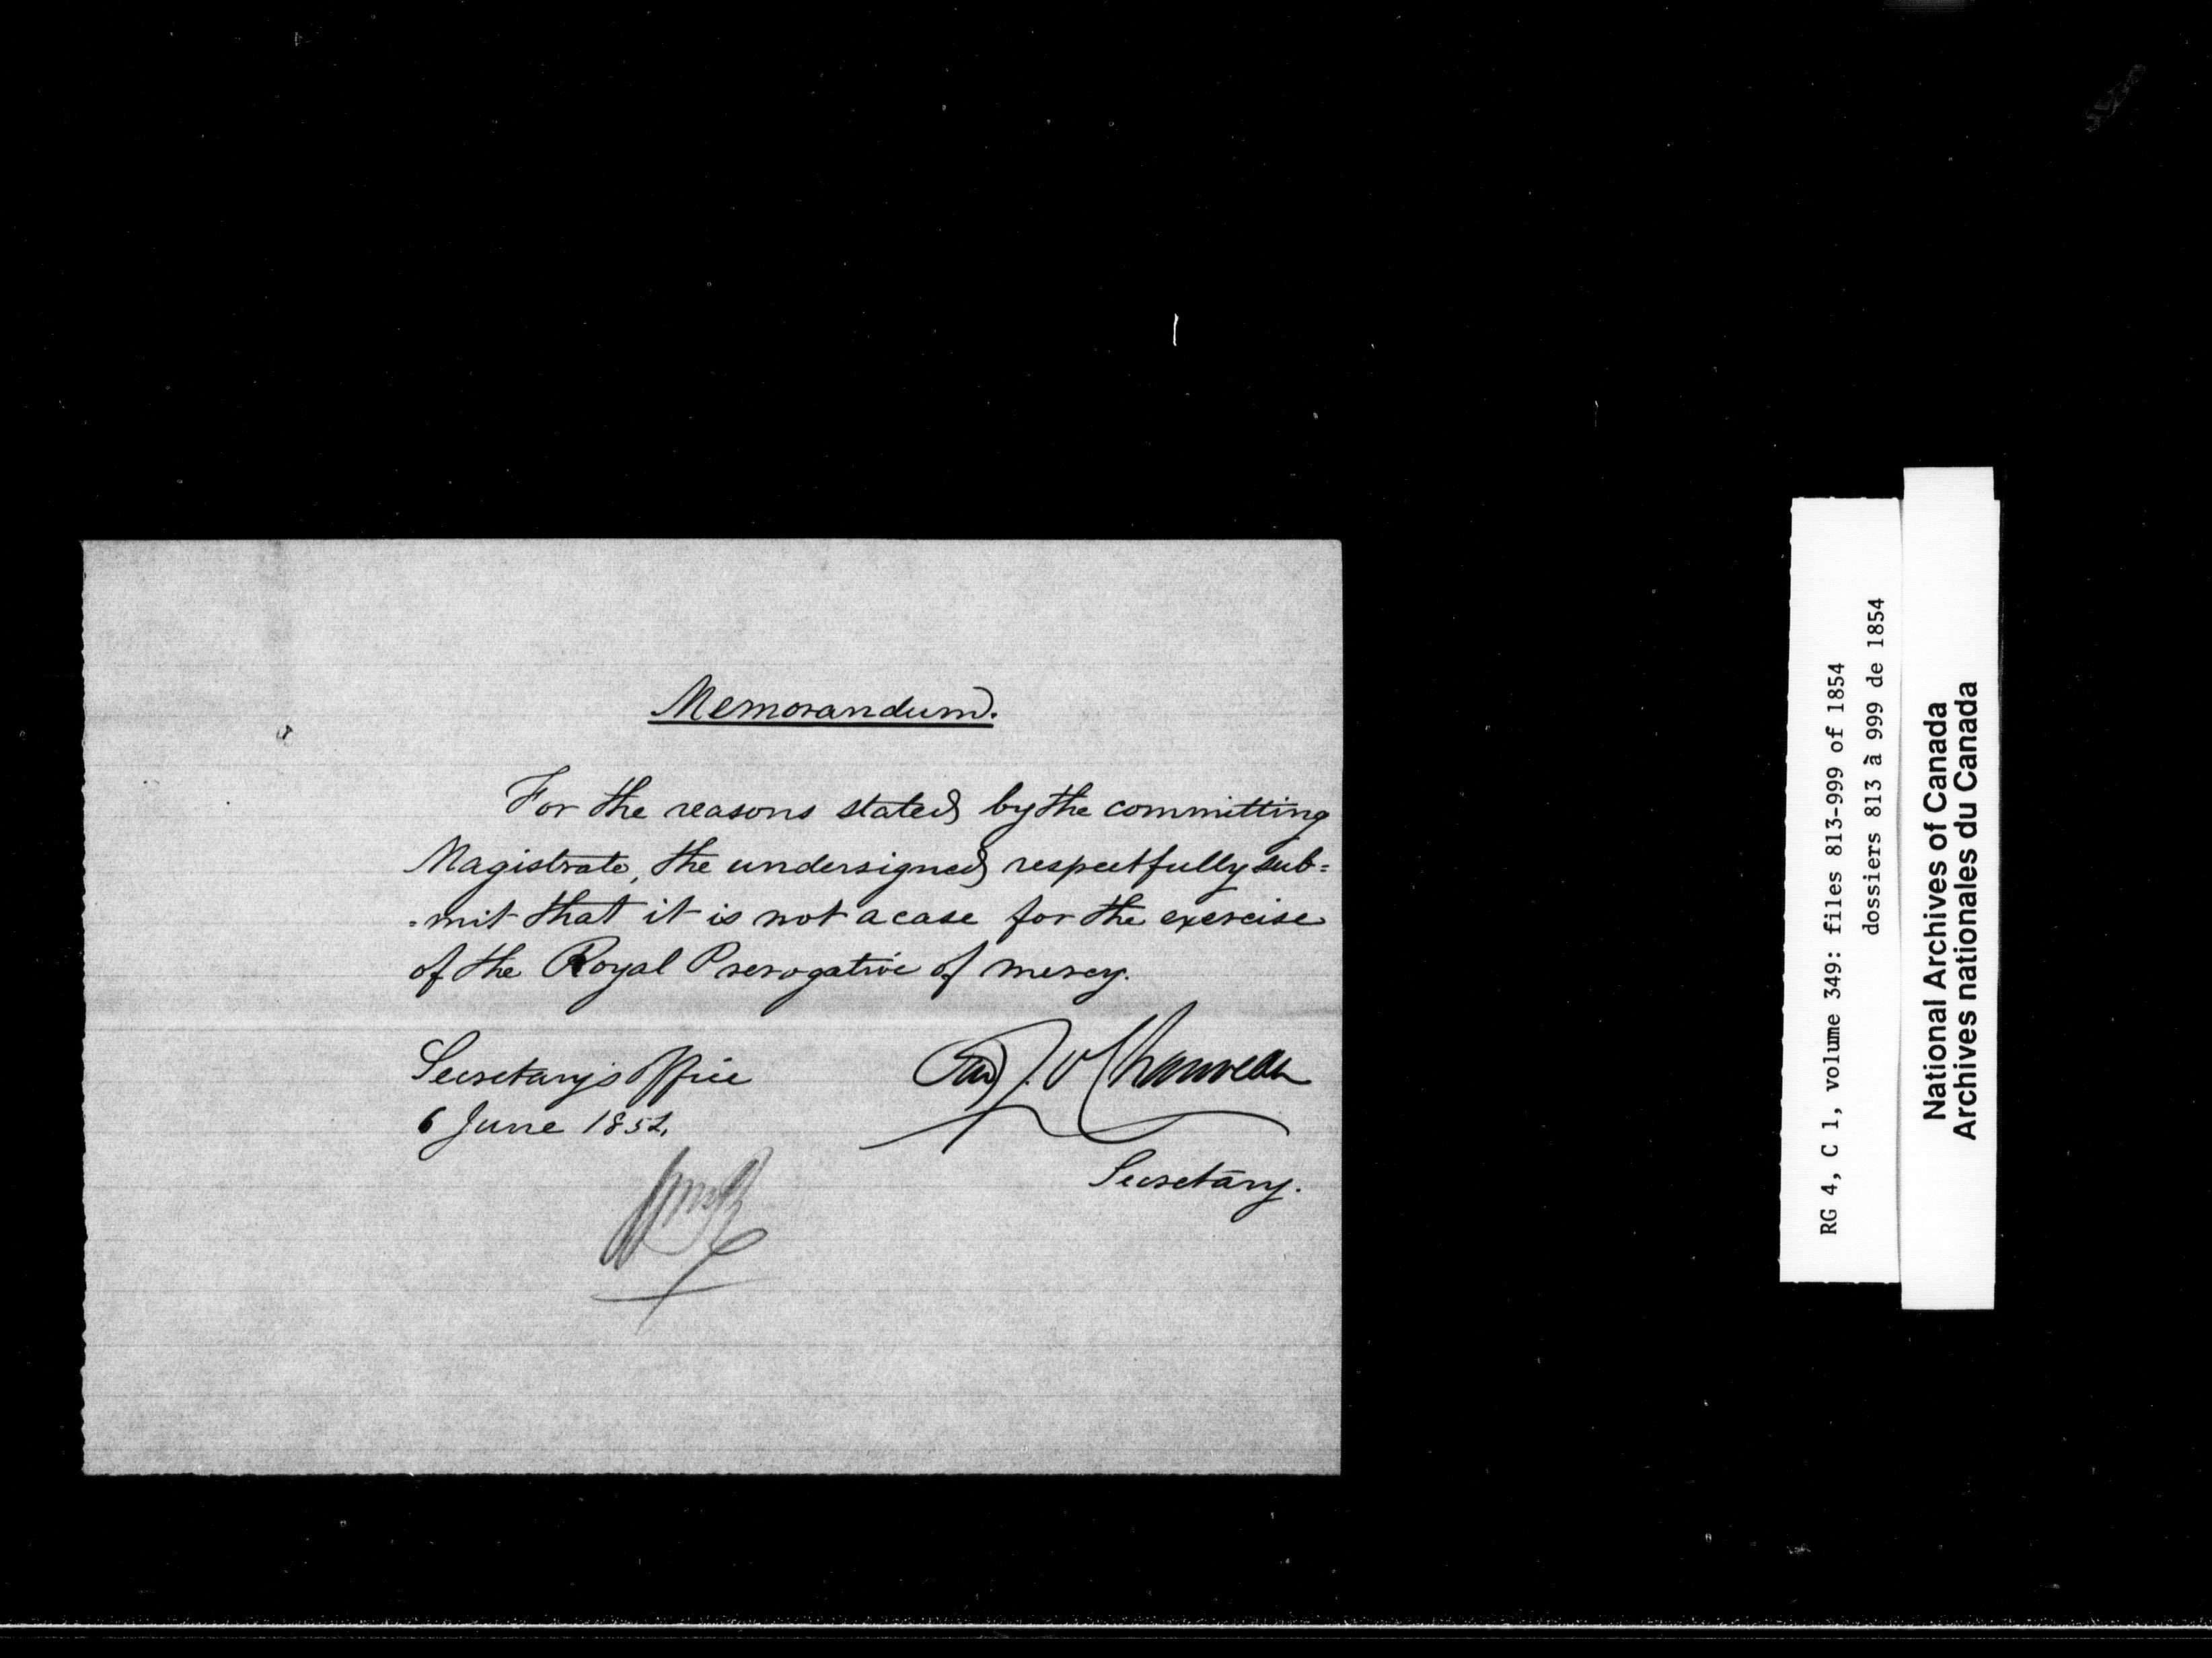 Memorandum.
For the reasons stated by the committing
Magistrate, the undersigned respectfully sub=
-mit that it is not a case for the exercise
of the Royal Prerogative of mercy.
Secretary's Office
6 June 1854.
Chauveau
Secretary.
RG 4, C 1, volume 349: files 813-999 of 1854
dossiers 813 à 999 de 1854
National Archives of Canada
Archives nationales du Canada